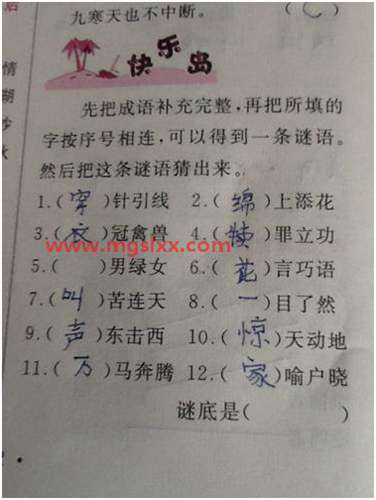 九寒天也不中断。 ( C )
情
快乐岛
先把成语补充完整,再把所填的
字按序号相连,可以得到一条谜语。
然后把这条谜语猜出来。
1.(穿)针引线 2.(绵)上添花
3.(衣)冠禽兽 4.( )罪立功
www.mgslxx.com
5.( )男绿女 6.(花)言巧语
7.(叫)苦连天 8.(一)目了然
9.(声)东击西 10.(惊)天动地
11.(万)马奔腾 12.(家)喻户晓
谜底是( )